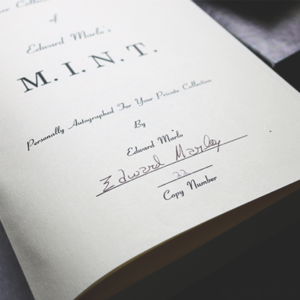 of
Edward Marlo's
M.I.N.T.
Personally Autographed For Your Private Collection
By
Edward Marlo
Edward Marley
Copy Number